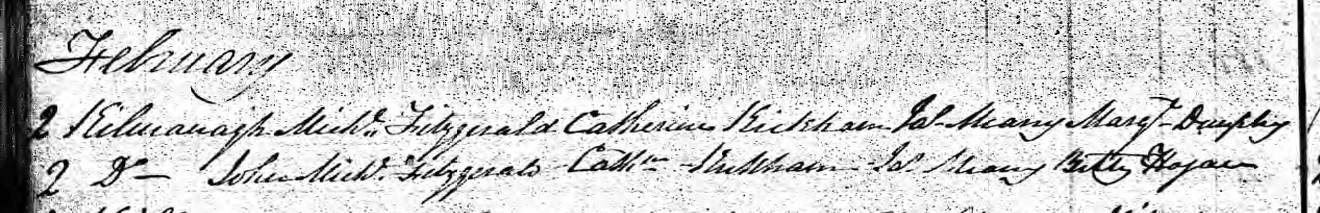 February
2 Kilmanagh Michl. Fitzgerald Catherine Kickham Jas Meany Margt Dunphy
2 Do John Michl. Fitzgerald Cathne Kickham Jas Meany Betty Hogan